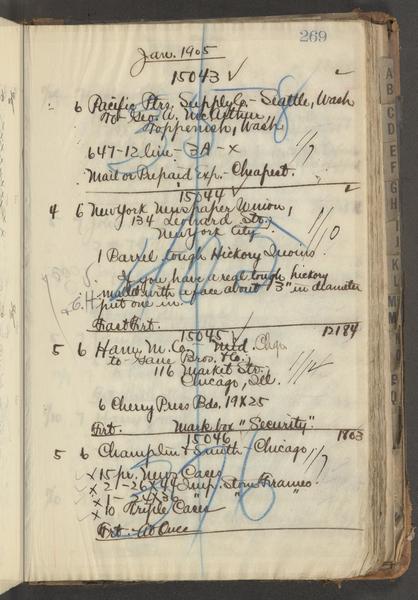 269
Jan. 1905
15043 ✓
6 Pacific Ptrs. Supply Co. - Seattle, Wash
To Geo. W. McArthur
Toppenish, Wash.
647-12 line - 3A - x
1/7
Mail or Prepaid exp. - Cheapest.
15044 ✓
4 6 New York Newspaper Union,
134 Leonard Str.,
New York City
1/10
1 Barrel tough Hickory Quoins.
If you have a regl tough hickory
mallet with a face about 3" in diameter
put one in.
Fast Frt.
15045 ✓ 12184
5 6 Ham. M. Co. - Mid. Chgo.
to - Gane Bros. & Co.,
116 Market Str.,
Chicago, Ill.
1/12
6 Cherry Press Bds. 19 X 25
Frt. Mark box "Security".
15046 1803
5 6 Champlin & Smith - Chicago
1/7
x 15 pr. Cases
x 2 - 26x44 Imp. Stone Frames.
x 1 - 24x36 " " "
x 10 Triple Cases
Frt - At Once
A
B
C
D
E
F
G
H
I
J
K
L
M